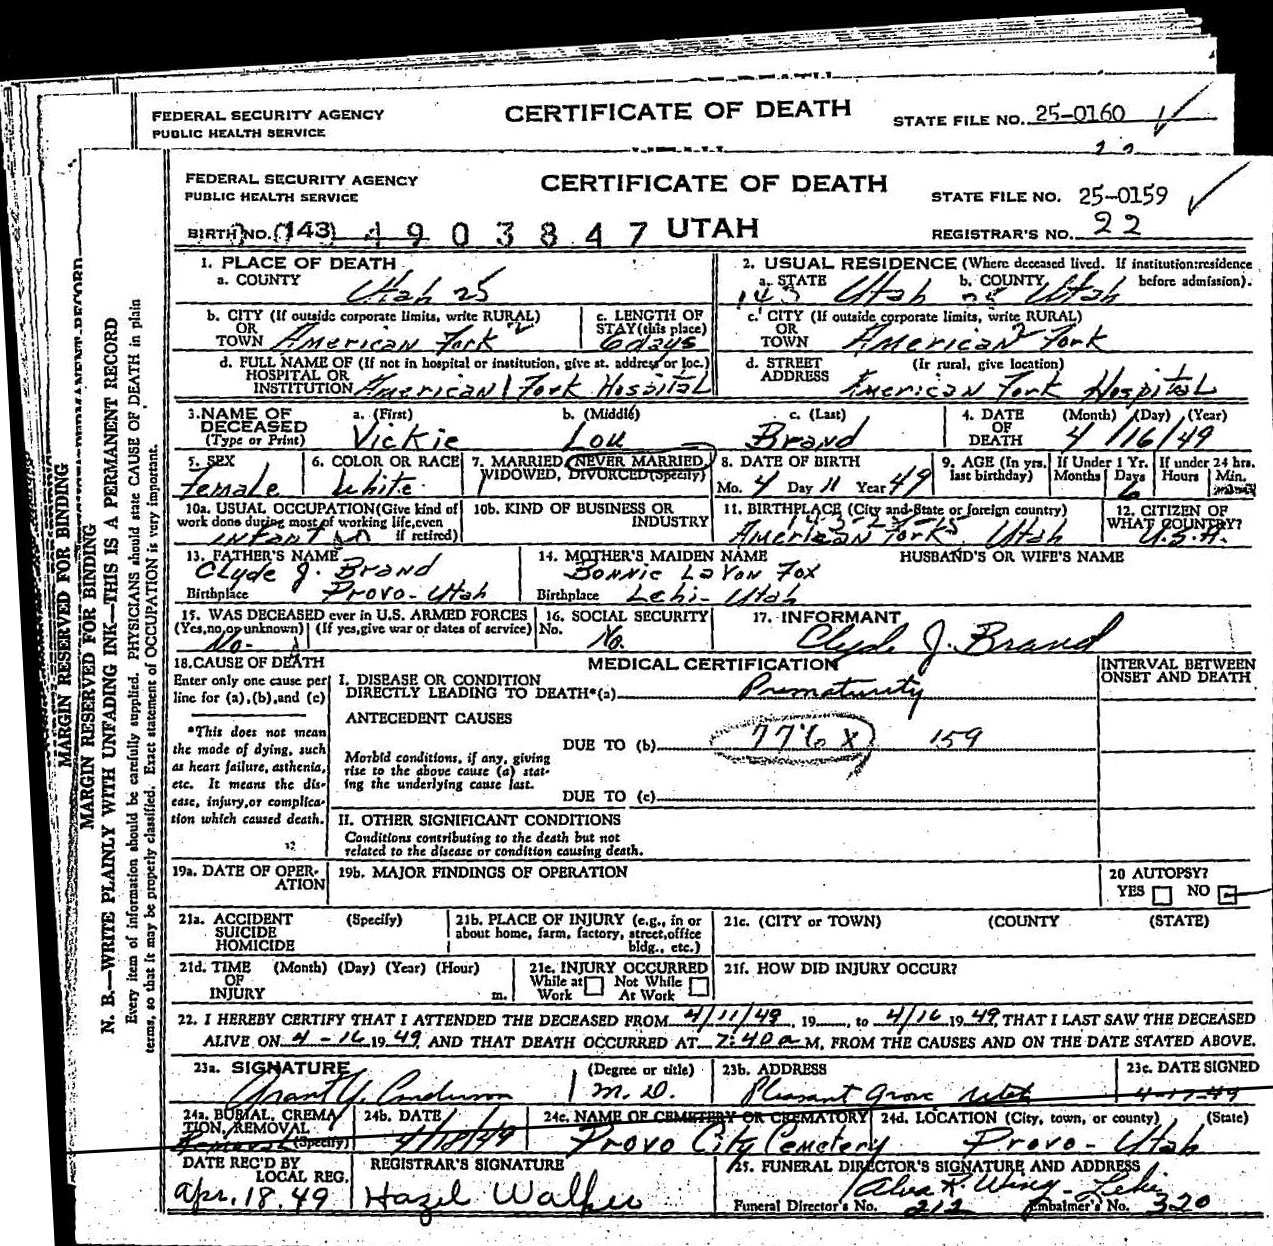 FEDERAL SECURITY AGENCY
PUBLIC HEALTH SERVICE
CERTIFICATE OF DEATH
STATE FILE NO. 25-0160
FEDERAL SECURITY AGENCY
PUBLIC HEALTH SERVICE
CERTIFICATE OF DEATH
STATE FILE NO. 25-0159
BIRTH NO. (143) 4903847 UTAH
REGISTRAR'S NO. 22
1. PLACE OF DEATH
a. COUNTY Utah 25
2. USUAL RESIDENCE (Where deceased lived. If institution:residence before admission).
a. STATE 143 Utah b. COUNTY 25 Utah
b. CITY (If outside corporate limits, write RURAL) OR TOWN American Fork 2
c. LENGTH OF STAY(this place) 6 days
c. CITY (If outside corporate limits, write RURAL) OR TOWN American 2 Fork
d. FULL NAME OF (If not in hospital or institution, give st. address or loc.) HOSPITAL OR INSTITUTION American Fork Hospital
d. STREET ADDRESS (If rural, give location) American Fork Hospital
3. NAME OF DECEASED (Type or Print)
a. (First) Vickie
b. (Middle) Lou
c. (Last) Brand
4. DATE OF DEATH (Month) (Day) (Year) 4/16/49
5. SEX Female
6. COLOR OR RACE White
7. MARRIED, NEVER MARRIED, WIDOWED, DIVORCED (Specify)
8. DATE OF BIRTH Mo. 4 Day 11 Year 49
9. AGE (In yrs. last birthday)
If Under 1 Yr. Months Days 6
If under 24 hrs. Hours Min.
10a. USUAL OCCUPATION(Give kind of work done during most of working life,even if retired) infant
10b. KIND OF BUSINESS OR INDUSTRY
11. BIRTHPLACE (City and State or foreign country) American Fork. Utah
12. CITIZEN OF WHAT COUNTRY? U.S.A.
13. FATHER'S NAME Clyde J. Brand
Birthplace Provo-Utah
14. MOTHER'S MAIDEN NAME Bonnie LaVon Fox
Birthplace Lehi-Utah
HUSBAND'S OR WIFE'S NAME
15. WAS DECEASED ever in U.S. ARMED FORCES
(Yes,no,or unknown) (If yes,give war or dates of service) No-
16. SOCIAL SECURITY No. No.
17. INFORMANT Clyde J. Brand
18. CAUSE OF DEATH
Enter only one cause per line for (a),(b),and (c)
MEDICAL CERTIFICATION
INTERVAL BETWEEN ONSET AND DEATH
I. DISEASE OR CONDITION
DIRECTLY LEADING TO DEATH*(a) Prematurity
ANTECEDENT CAUSES
DUE TO (b) 776X 159
Morbid conditions, if any, giving rise to the above cause (a) stating the underlying cause last.
DUE TO (c)
*This does not mean the mode of dying, such as heart failure, asthenia, etc. It means the disease, injury,or complication which caused death.
II. OTHER SIGNIFICANT CONDITIONS
Conditions contributing to the death but not related to the disease or condition causing death.
19a. DATE OF OPERATION
19b. MAJOR FINDINGS OF OPERATION
20 AUTOPSY?
YES NO
21a. ACCIDENT SUICIDE HOMICIDE (Specify)
21b. PLACE OF INJURY (e.g., in or about home, farm, factory, street,office bldg., etc.)
21c. (CITY or TOWN) (COUNTY (STATE)
21d. TIME OF INJURY (Month) (Day) (Year) (Hour) m.
21e. INJURY OCCURRED
While at Work Not While At Work
21f. HOW DID INJURY OCCUR?
22. I HEREBY CERTIFY THAT I ATTENDED THE DECEASED FROM 4/11/49, 19, to 4/16 19 49, THAT I LAST SAW THE DECEASED
ALIVE ON 4-16 19 49 AND THAT DEATH OCCURRED AT 7:40a M, FROM THE CAUSES AND ON THE DATE STATED ABOVE.
23a. SIGNATURE Grant Y. Anderson
(Degree or title) M.D.
23b. ADDRESS Pleasant Grove Utah
23c. DATE SIGNED 4-17-49
24a. BURIAL, CREMATION, REMOVAL (Specify) Removal
24b. DATE 4/18/49
24c. NAME OF CEMETERY OR CREMATORY Provo City Cemetery
24d. LOCATION (City, town, or county) (State) Provo-Utah
DATE REC'D BY LOCAL REG. Apr. 18. 49
REGISTRAR'S SIGNATURE Hazel Walker
25. FUNERAL DIRECTOR'S SIGNATURE AND ADDRESS Alva R. Wing-Lehi
Funeral Director's No. 212 Embalmer's No. 320
MARGIN RESERVED FOR BINDING
MARGIN RESERVED FOR BINDING
N. B.—WRITE PLAINLY WITH UNFADING INK—THIS IS A PERMANENT RECORD
Every item of information should be carefully supplied. PHYSICIANS should state CAUSE OF DEATH in plain
terms, so that it may be properly classified. Exact statement of OCCUPATION is very important.